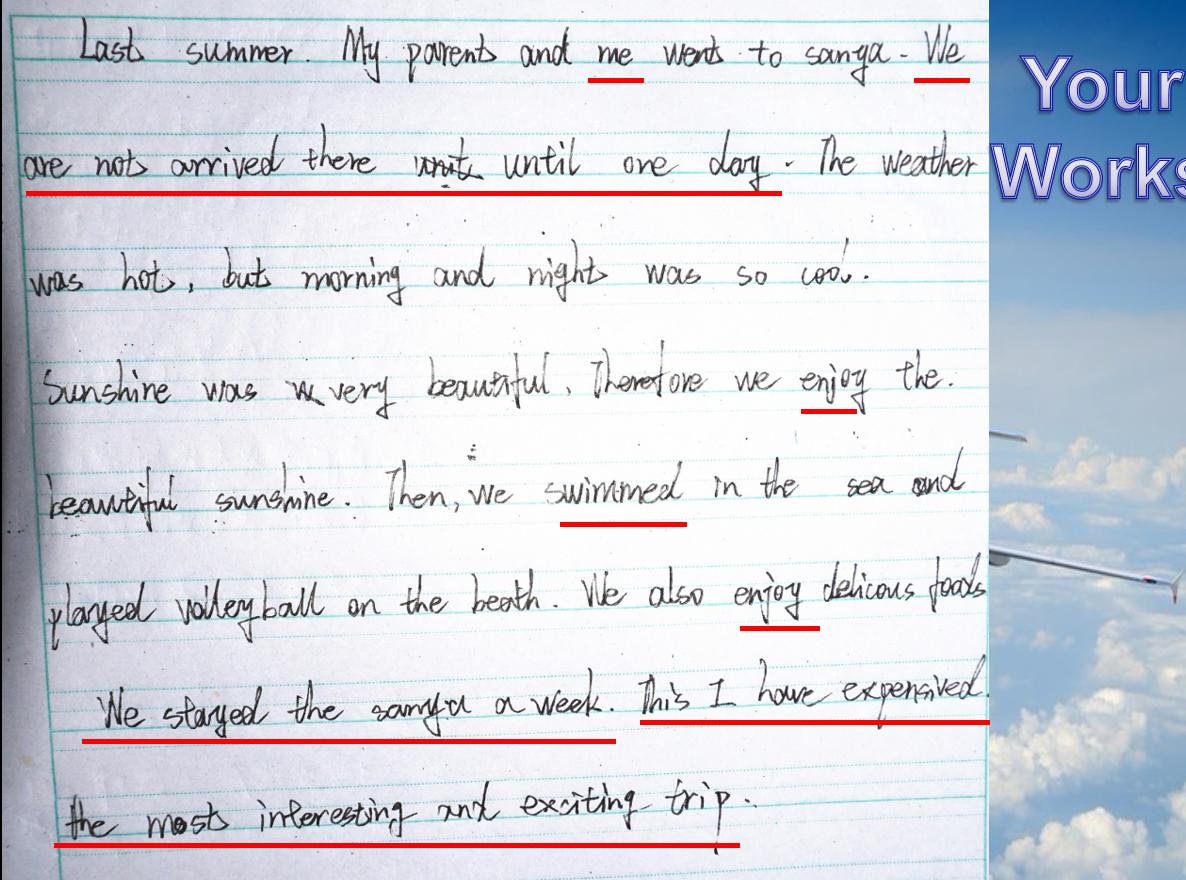 Last summer. My parents and me went to sanya. We
are not arrived there until one day. The weather
was hot, but morning and night was so cool.
Sunshine was very beautiful. Therefore we enjoy the.
beautiful sunshine. Then, we swimmed in the sea and
played volleyball on the beath. We also enjoy delicous foods
We stayed the sanya a week. This I have expensived.
the most interesting and exciting trip.
Your
Works